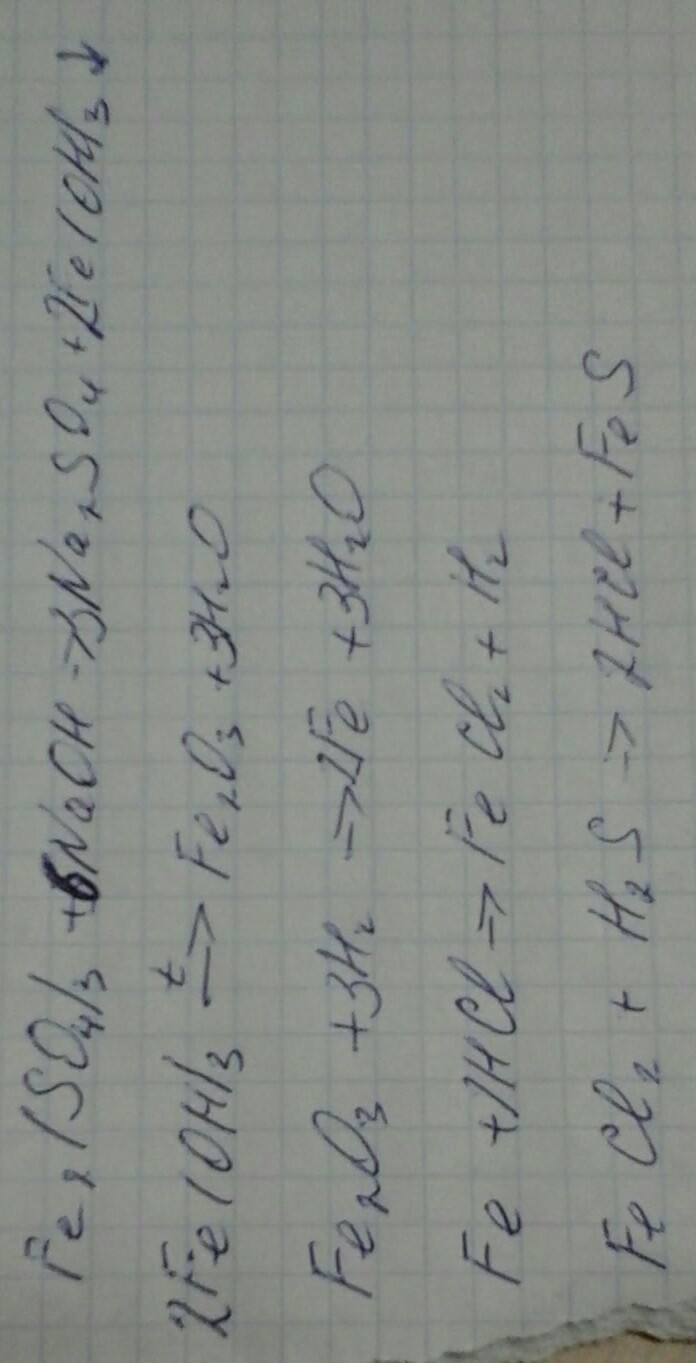 Fe₂(SO₄)₃ + 6NaOH → 3Na₂SO₄ + 2Fe(OH)₃ ↓
2Fe(OH)₃ →ᵗ Fe₂O₃ + 3H₂O
Fe₂O₃ + 3H₂ → 2Fe + 3H₂O
Fe + 2HCl → FeCl₂ + H₂
FeCl₂ + H₂S → 2HCl + FeS